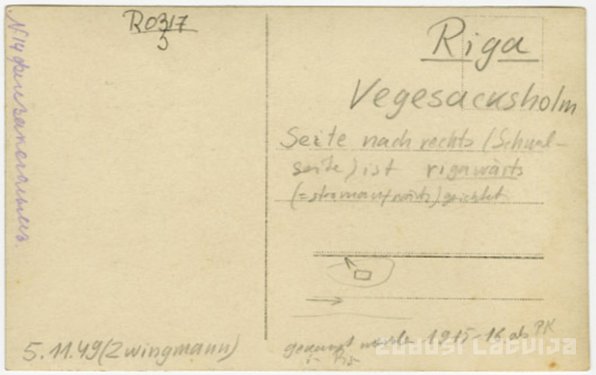 R0317
5
Riga
Vegesacksholm
Seite nach rechts (Schmal-
seite) ist rigawärts
(=stromaufwärts) gerichtet
5.11.49 (Zwingmann)
1915-16 als PK
ZUDUSI LATVIJA